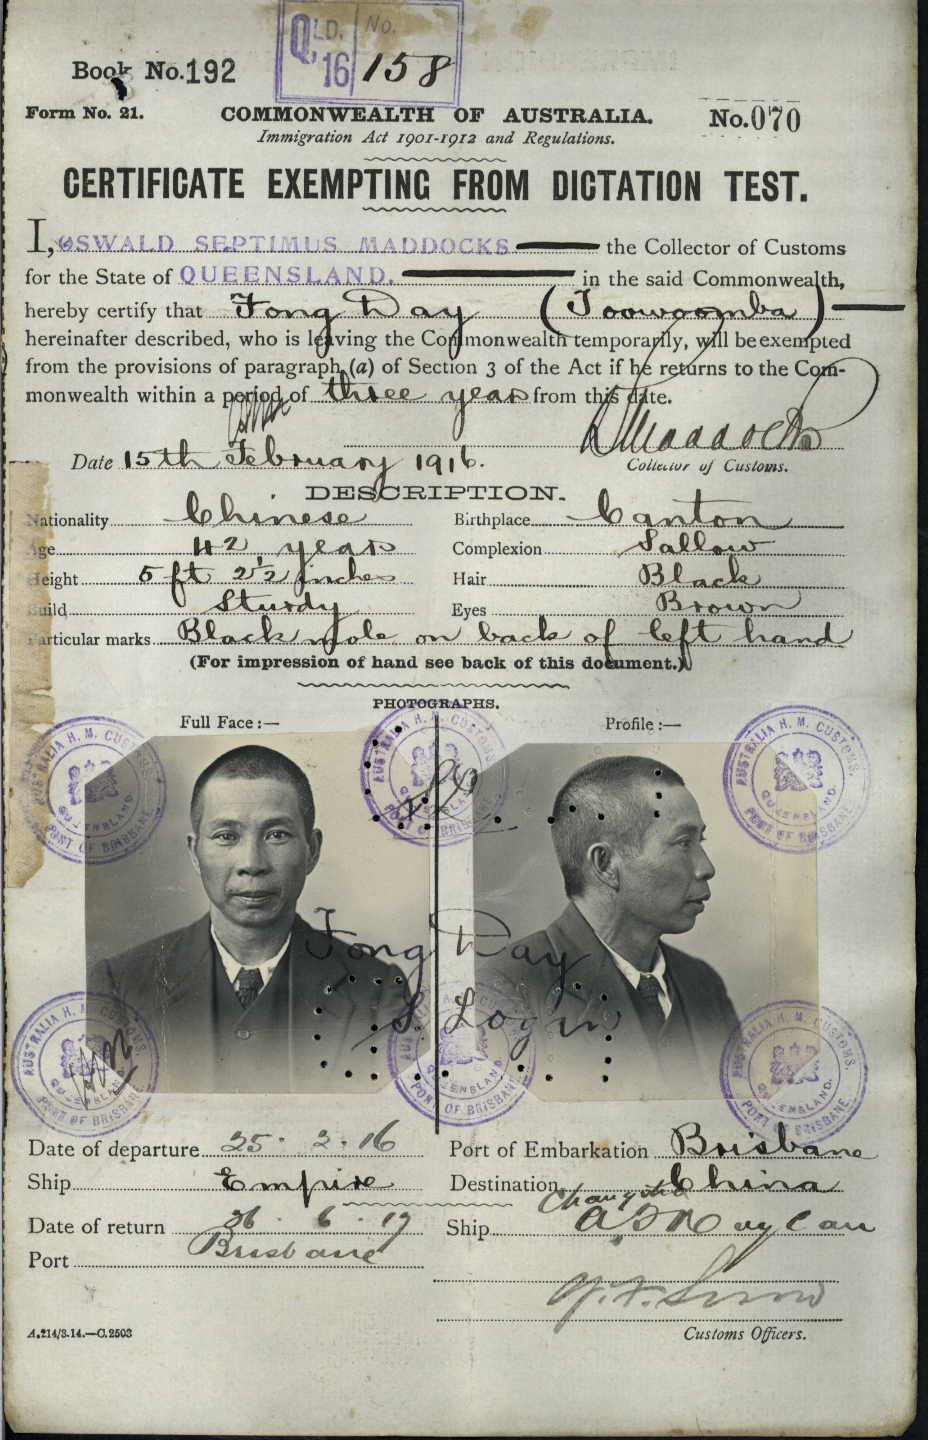 QLD. 16 No. 158
Book No. 192
Form No. 21. COMMONWEALTH OF AUSTRALIA. No. 070
Immigration Act 1901-1912 and Regulations.
CERTIFICATE EXEMPTING FROM DICTATION TEST.
I, OSWALD SEPTIMUS MADDOCKS the Collector of Customs
for the State of QUEENSLAND. in the said Commonwealth,
hereby certify that Fong Day (Toowoomba)
hereinafter described, who is leaving the Commonwealth temporarily, will be exempted
from the provisions of paragraph (a) of Section 3 of the Act if he returns to the Com-
monwealth within a period of three years from this date.
Maddocks
Date 15th February 1916. Collector of Customs.
DESCRIPTION.
Nationality Chinese Birthplace Canton
Age 42 years Complexion Sallow
Height 5 ft 2½ inches Hair Black
Build Sturdy Eyes Brown
Particular marks Black mole on back of left hand
(For impression of hand see back of this document.)
PHOTOGRAPHS.
Full Face:— Profile:—
AUSTRALIA H. M. CUSTOMS. QUEENSLAND. PORT OF BRISBANE
AUSTRALIA H. M. CUSTOMS. QUEENSLAND. PORT OF BRISBANE
AUSTRALIA H. M. CUSTOMS. QUEENSLAND. PORT OF BRISBANE
Fong Day
S. Login
AUSTRALIA H. M. CUSTOMS. QUEENSLAND. PORT OF BRISBANE
QUEENSLAND. PORT OF BRISBANE
AUSTRALIA H. M. CUSTOMS. QUEENSLAND. PORT OF BRISBANE
Date of departure 25. 2. 16 Port of Embarkation Brisbane
Ship Empire Destination China
Date of return 26. 6. 17 Ship
Port Brisbane
A.214/3.14.—C.2503 Customs Officers.